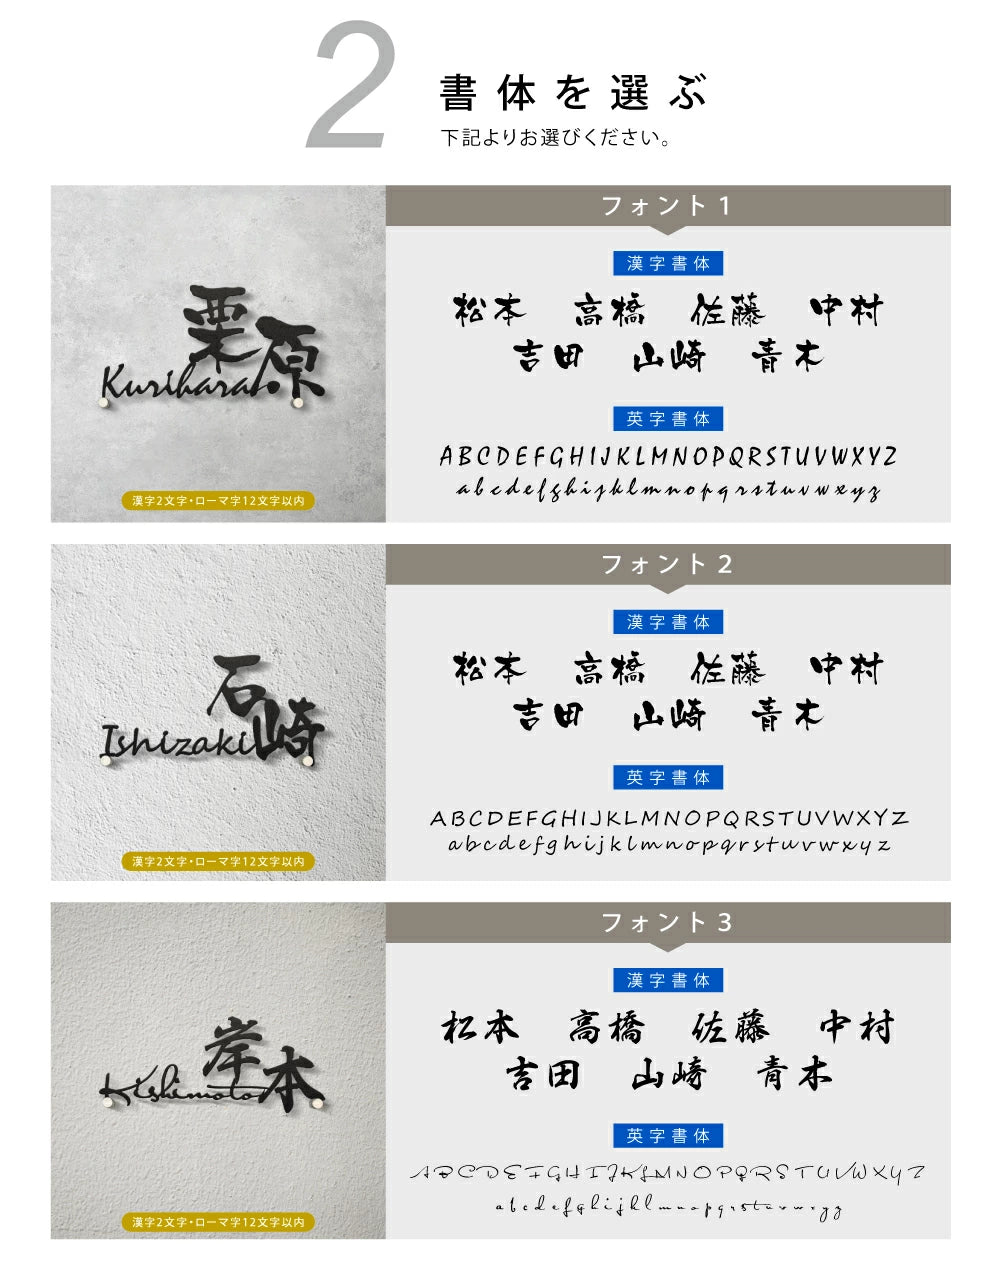 2
書体を選ぶ
下記よりお選びください。
栗原
Kurihara
漢字2文字・ローマ字12文字以内
フォント1
漢字書体
松本 高橋 佐藤 中村
吉田 山崎 青木
英字書体
ABCDEFGHIJKLMNOPQRSTUVWXYZ
abcdefghijklmnopqrstuvwxyz
石崎
Ishizaki
漢字2文字・ローマ字12文字以内
フォント2
漢字書体
松本 高橋 佐藤 中村
吉田 山崎 青木
英字書体
ABCDEFGHIJKLMNOPQRSTUVWXYZ
abcdefghijklmnopqrstuvwxyz
岸本
Kishimoto
漢字2文字・ローマ字12文字以内
フォント3
漢字書体
松本 高橋 佐藤 中村
吉田 山崎 青木
英字書体
ABCDEFGHIJKLMNOPQRSTUVWXYZ
abcdefghijklmnopqrstuvwxyz